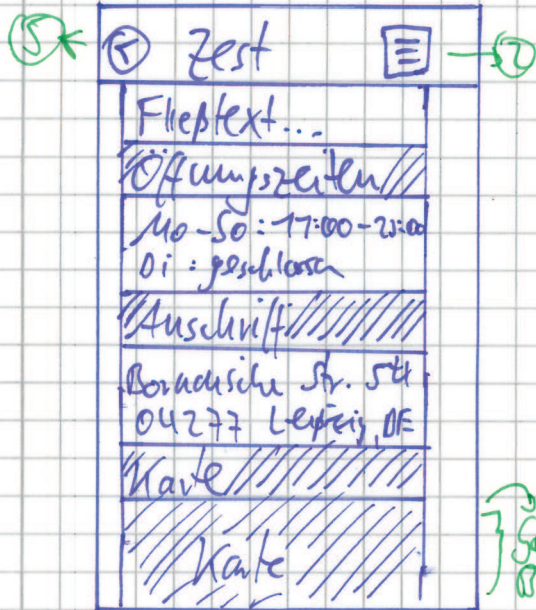 5 Zest 2
Fließtext...
Öffnungszeiten
Mo-So: 17:00-23:00
Di: geschlossen
Anschrift
Bornaische Str. 54
04277 Leipzig, DE
Karte
Karte